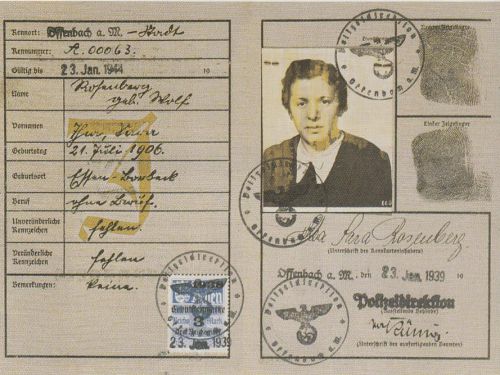 Kennort: Offenbach a. M. - Stadt
Kennnummer: A. 00063.
Gültig bis 23. Jan. 1944 19
Name Rosenberg
geb. Wolf
Vornamen Sara
Geburtstag 21. Juli 1906.
Geburtsort Essen-Borbeck
Beruf ohne Beruf.
Unveränderliche Kennzeichen fehlen.
Veränderliche Kennzeichen fehlen
Bemerkungen: keine.
J
Polizeidirektion
3
23. Jan. 1939
Polizeidirektion
Offenbach a.M.
Rechter Zeigefinger
Linker Zeigefinger
Polizeidirektion
Sara Rosenberg
(Unterschrift des Kennkarteninhabers)
Offenbach a. M., den 23. Jan 1939
Polizeidirektion
(Ausstellende Behörde)
(Unterschrift des ausfertigenden Beamten)
Polizeidirektion
Offenbach a.M.